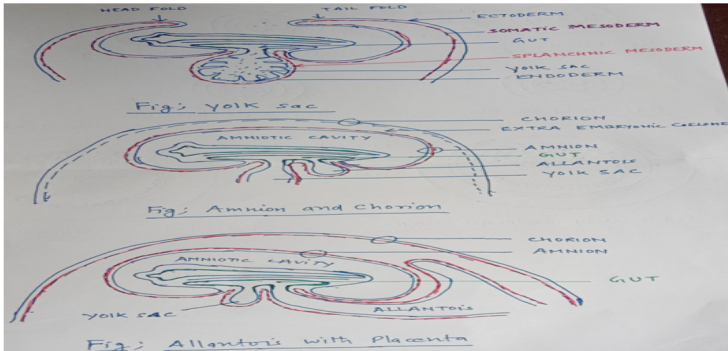 HEAD FOLD
TAIL FOLD
ECTODERM
SOMATIC MESODERM
GUT
SPLANCHNIC MESODERM
YOLK SAC
ENDODERM
Fig; Yolk Sac
CHORION
EXTRA EMBRYONIC COELOME
AMNIOTIC CAVITY
AMNION
GUT
ALLANTOIS
YOLK SAC
Fig; Amnion and Chorion
CHORION
AMNION
AMNIOTIC CAVITY
GUT
YOLK SAC
ALLANTOIS
Fig; Allantois with Placenta